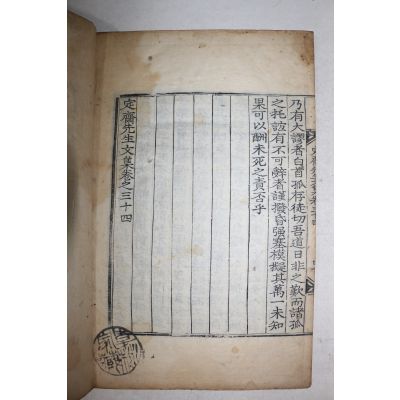 乃有大謬者白首孤存徒切吾道日非之歎而諸孤
之托誼有不可辭者謹撥昏强塞模擬其萬一未知
果可以酬未死之責否乎
定齋先生文集卷之三十四